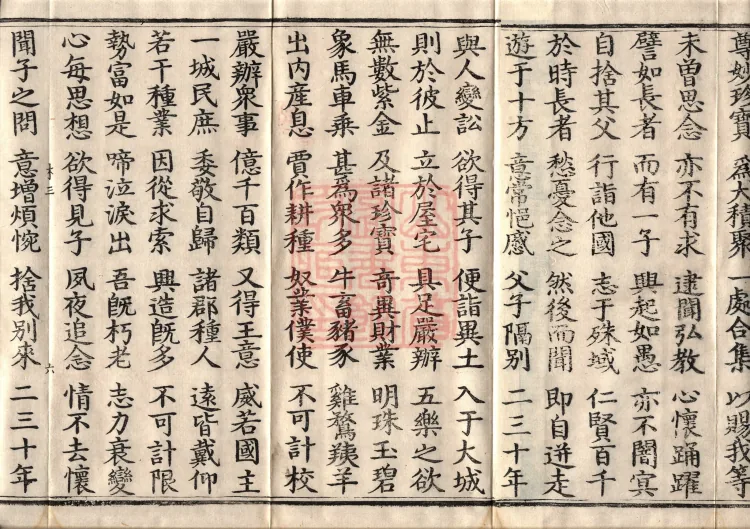 尊妙珍寶 為大積聚 一處合集 以賜我等
未曾思念 亦不有求 逮聞弘教 心懷踊躍
譬如長者 而有一子 興起如愚 亦不闇冥
自捨其父 行詣他國 志于殊域 仁賢百千
於時長者 愁憂念之 然後而聞 即自迸走
遊于十方 意常悒慼 父子隔別 二三十年
與人變訟 欲得其子 便詣異土 入于大城
則於彼止 立於屋宅 具足嚴辦 五樂之欲
無數紫金 及諸珍寶 奇異財業 明珠玉碧
象馬車乘 甚為眾多 牛畜豬豕 雞鶩羠羊
出內產息 賈作耕種 奴業僕使 不可計校
嚴辦眾事 億千百類 又得王意 威若國主
一城民庶 委敬自歸 諸郡種人 遠皆戴仰
若干種業 因從求索 興造既多 不可計限
勢富如是 啼泣淚出 吾既朽老 志力衰變
心每思想 欲得見子 夙夜追念 情不去懷
聞子之問 意增煩惋 捨我別來 二三十年